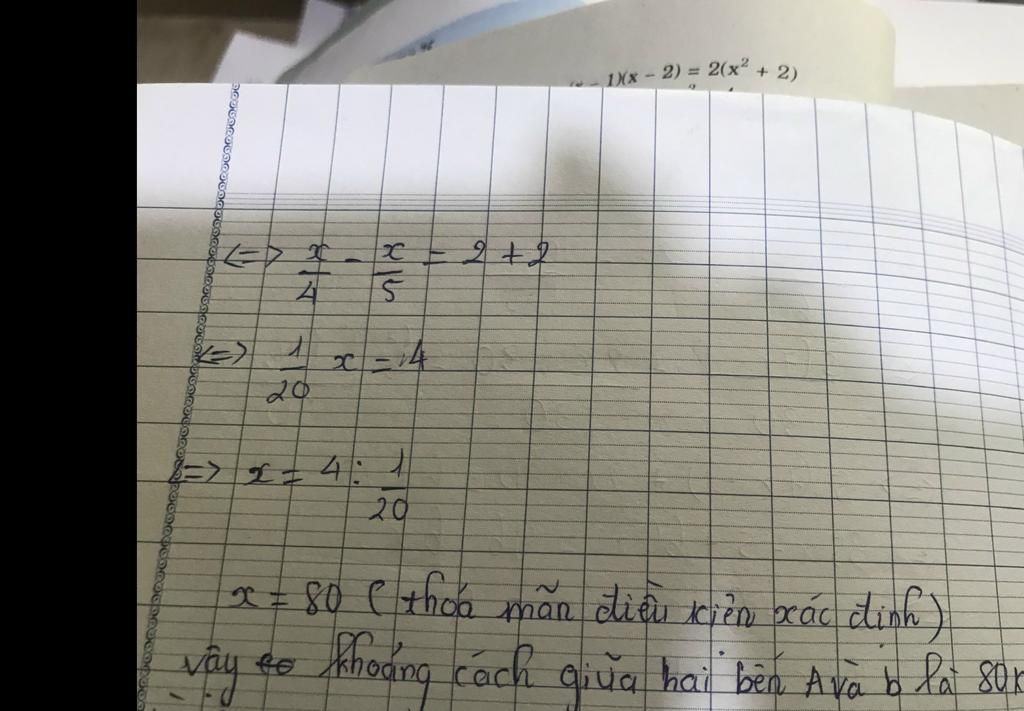 1)(x - 2) = 2(x² + 2)
<=> x/4 - x/5 = 2 + 2
<=> 1/20 x = 4
<=> x = 4 : 1/20
x = 80 (thoả mãn điều kiện xác định)
vậy khoảng cách giữa hai bến A và b là 80